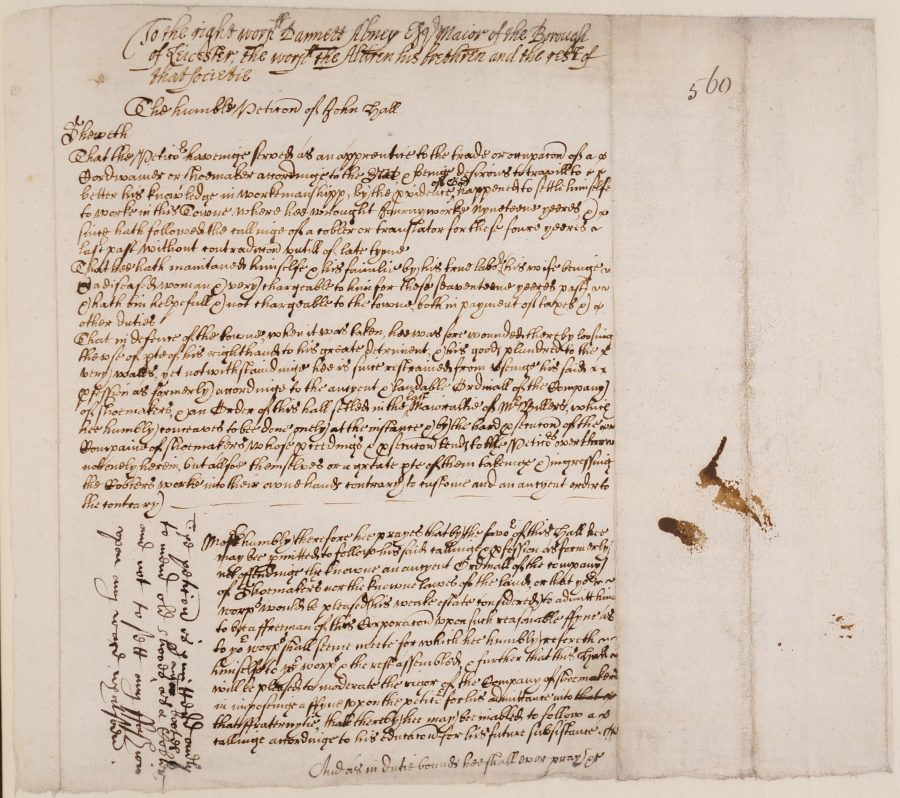 To the right worll Dannett Abney Esqr Maior of the Borough
of Leicester, the worll the Aldren his brethren and the rest of
that societie
560
The humble Peticon of John Hall
Sheweth
That the Peticor haveinge served as an apprentice to the trade or occupacon of a
Cordwainer or shoemaker accordinge to the Stat & beinge desirous to travill to
better his knowledge in workemanshipp, by the pvidence of God happened to settle himselfe
to worke in this Towne where hee wrought Iurnayworke nyneteene yeeres &
since hath followed the callinge of a cobler or translator for these foure yeeres
last past without contradiccon untill of late tyme
That hee hath maintaned himselfe & his familie by his true labor his wife beinge
a diseased woman & very chargeable to him for these seaventeene yeeres past
& hath bin helpefull & not chargeable to the towne, both in payment of taxes &
other duties
That in defence of the towne, when it was taken, hee was sore wounded thereby loosing
the use of pte of his right hand to his greate detriment, & his goods plundered to the
very walls, yet notwithstandinge hee is since restrained from useinge his said
pfession as formerly accordinge to the ancyent & laudable Ordinall of the Company
of shoemakers & an Order of this hall setled in the Maioraltie of Mr Billers, which
hee humbly conceaves to bee done onely at the instance & by the hard psecucon of the
Companie of shoemakers whose pceedings & psecucon tends to the Peticors overthrow
not onely herein, but allsoe themselves or a greate pte of them takeinge & ingrossing
the Coblers worke into their owne hands contrary to custome and an ancyent order to
the contrary
Most humbly therefore hee prayes that by the favor of this Hall hee
may bee pmitted to follow his said callinge & pfession as formerly
not offendinge the knowne ancyent Ordinall of the company
of Shoemakers nor the knowne lawes of the land, or that yor
worps would be pleased his weake estate considered to admitt him
to bee a freeman of this Corporacon upon such reasonable ffyne as
to yor worps shall seeme meete for which hee humbly referreth
himselfe to yor worps & the rest assembled & further that this Hall
will be pleased to moderate the rigor of the Company of shoemakers
in imposeinge a ffyne upon the peticor for his admittance into
that ffraternytie, that thereby hee may bee inabled to follow
callinge accordinge to his educacon for his future subsistance
And as in dutie bound hee shall ever pray &c
The petition is granted onely
to mend old shooes as a Cobler
and not to sett any
upon any